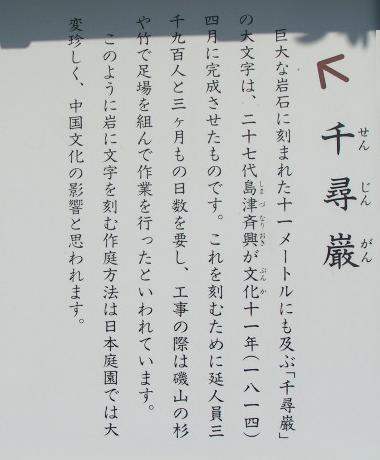 千尋巌
せんじんがん
巨大な岩石に刻まれた十一メートルにも及ぶ「千尋巌」
の大文字は、二十七代島津斉興が文化十一年(一八一四)
しまづなりおき ぶんか
四月に完成させたものです。これを刻むために延人員三
千九百人と三ヶ月もの日数を要し、工事の際は磯山の杉
や竹で足場を組んで作業を行ったといわれています。
このように岩に文字を刻む作庭方法は日本庭園では大
変珍しく、中国文化の影響と思われます。